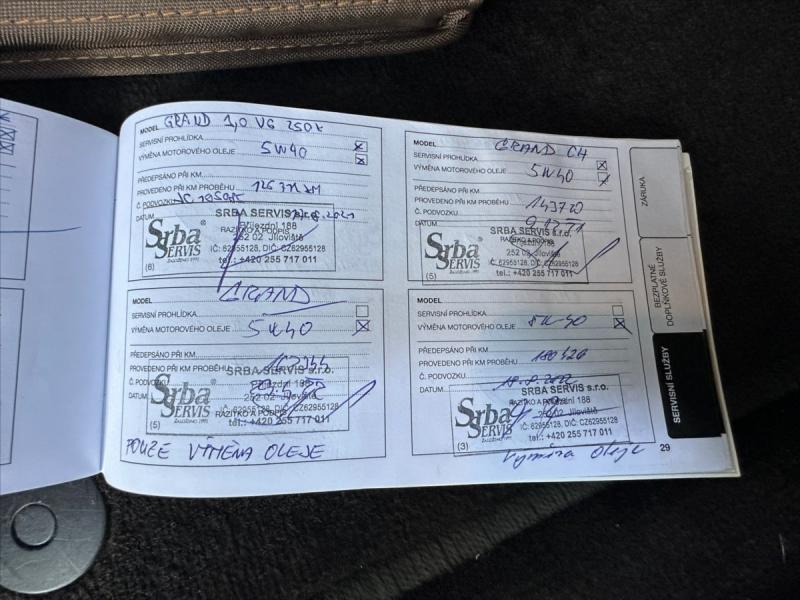 MODEL GRAND
SERVISNÍ PROHLÍDKA
VÝMĚNA MOTOROVÉHO OLEJE 5W40
PŘEDEPSÁNO PŘI KM
PROVEDENO PŘI KM PROBĚHU
Č. PODVOZKU
DATUM
SRBA SERVIS s.r.o.
Příjezdní 188
RAZÍTKO A PODPIS
252 02 Jíloviště
IČ: 62955128, DIČ: CZ62955128
tel.: +420 255 717 011
Srba
SERVIS
(6)
MODEL GRAND
SERVISNÍ PROHLÍDKA
VÝMĚNA MOTOROVÉHO OLEJE 5W40
PŘEDEPSÁNO PŘI KM
PROVEDENO PŘI KM PROBĚHU
Č. PODVOZKU
DATUM
SRBA SERVIS s.r.o.
Příjezdní 188
252 02 Jíloviště
IČ: 62955128, DIČ: CZ62955128
RAZÍTKO A PODPIS
tel.: +420 255 717 011
Srba
SERVIS
(5)
POUZE VÝMĚNA OLEJE
MODEL GRAND
SERVISNÍ PROHLÍDKA
VÝMĚNA MOTOROVÉHO OLEJE 5W40
PŘEDEPSÁNO PŘI KM
PROVEDENO PŘI KM PROBĚHU 143720
Č. PODVOZKU
DATUM
SRBA SERVIS s.r.o.
RAZÍTKO A PODPIS
252 02 Jíloviště
IČ: 62955128, DIČ: CZ62955128
tel.: +420 255 717 011
Srba
SERVIS
(5)
MODEL
SERVISNÍ PROHLÍDKA
VÝMĚNA MOTOROVÉHO OLEJE
PŘEDEPSÁNO PŘI KM
PROVEDENO PŘI KM PROBĚHU 180426
Č. PODVOZKU
DATUM
SRBA SERVIS s.r.o.
RAZÍTKO A PODPIS
252 02 Jíloviště
IČ: 62955128, DIČ: CZ62955128
tel.: +420 255 717 011
Srba
SERVIS
(3)
Výměna oleje
29
ZÁRUKA
BEZPLATNÉ
DOPLŇKOVÉ SLUŽBY
SERVISNÍ SLUŽBY